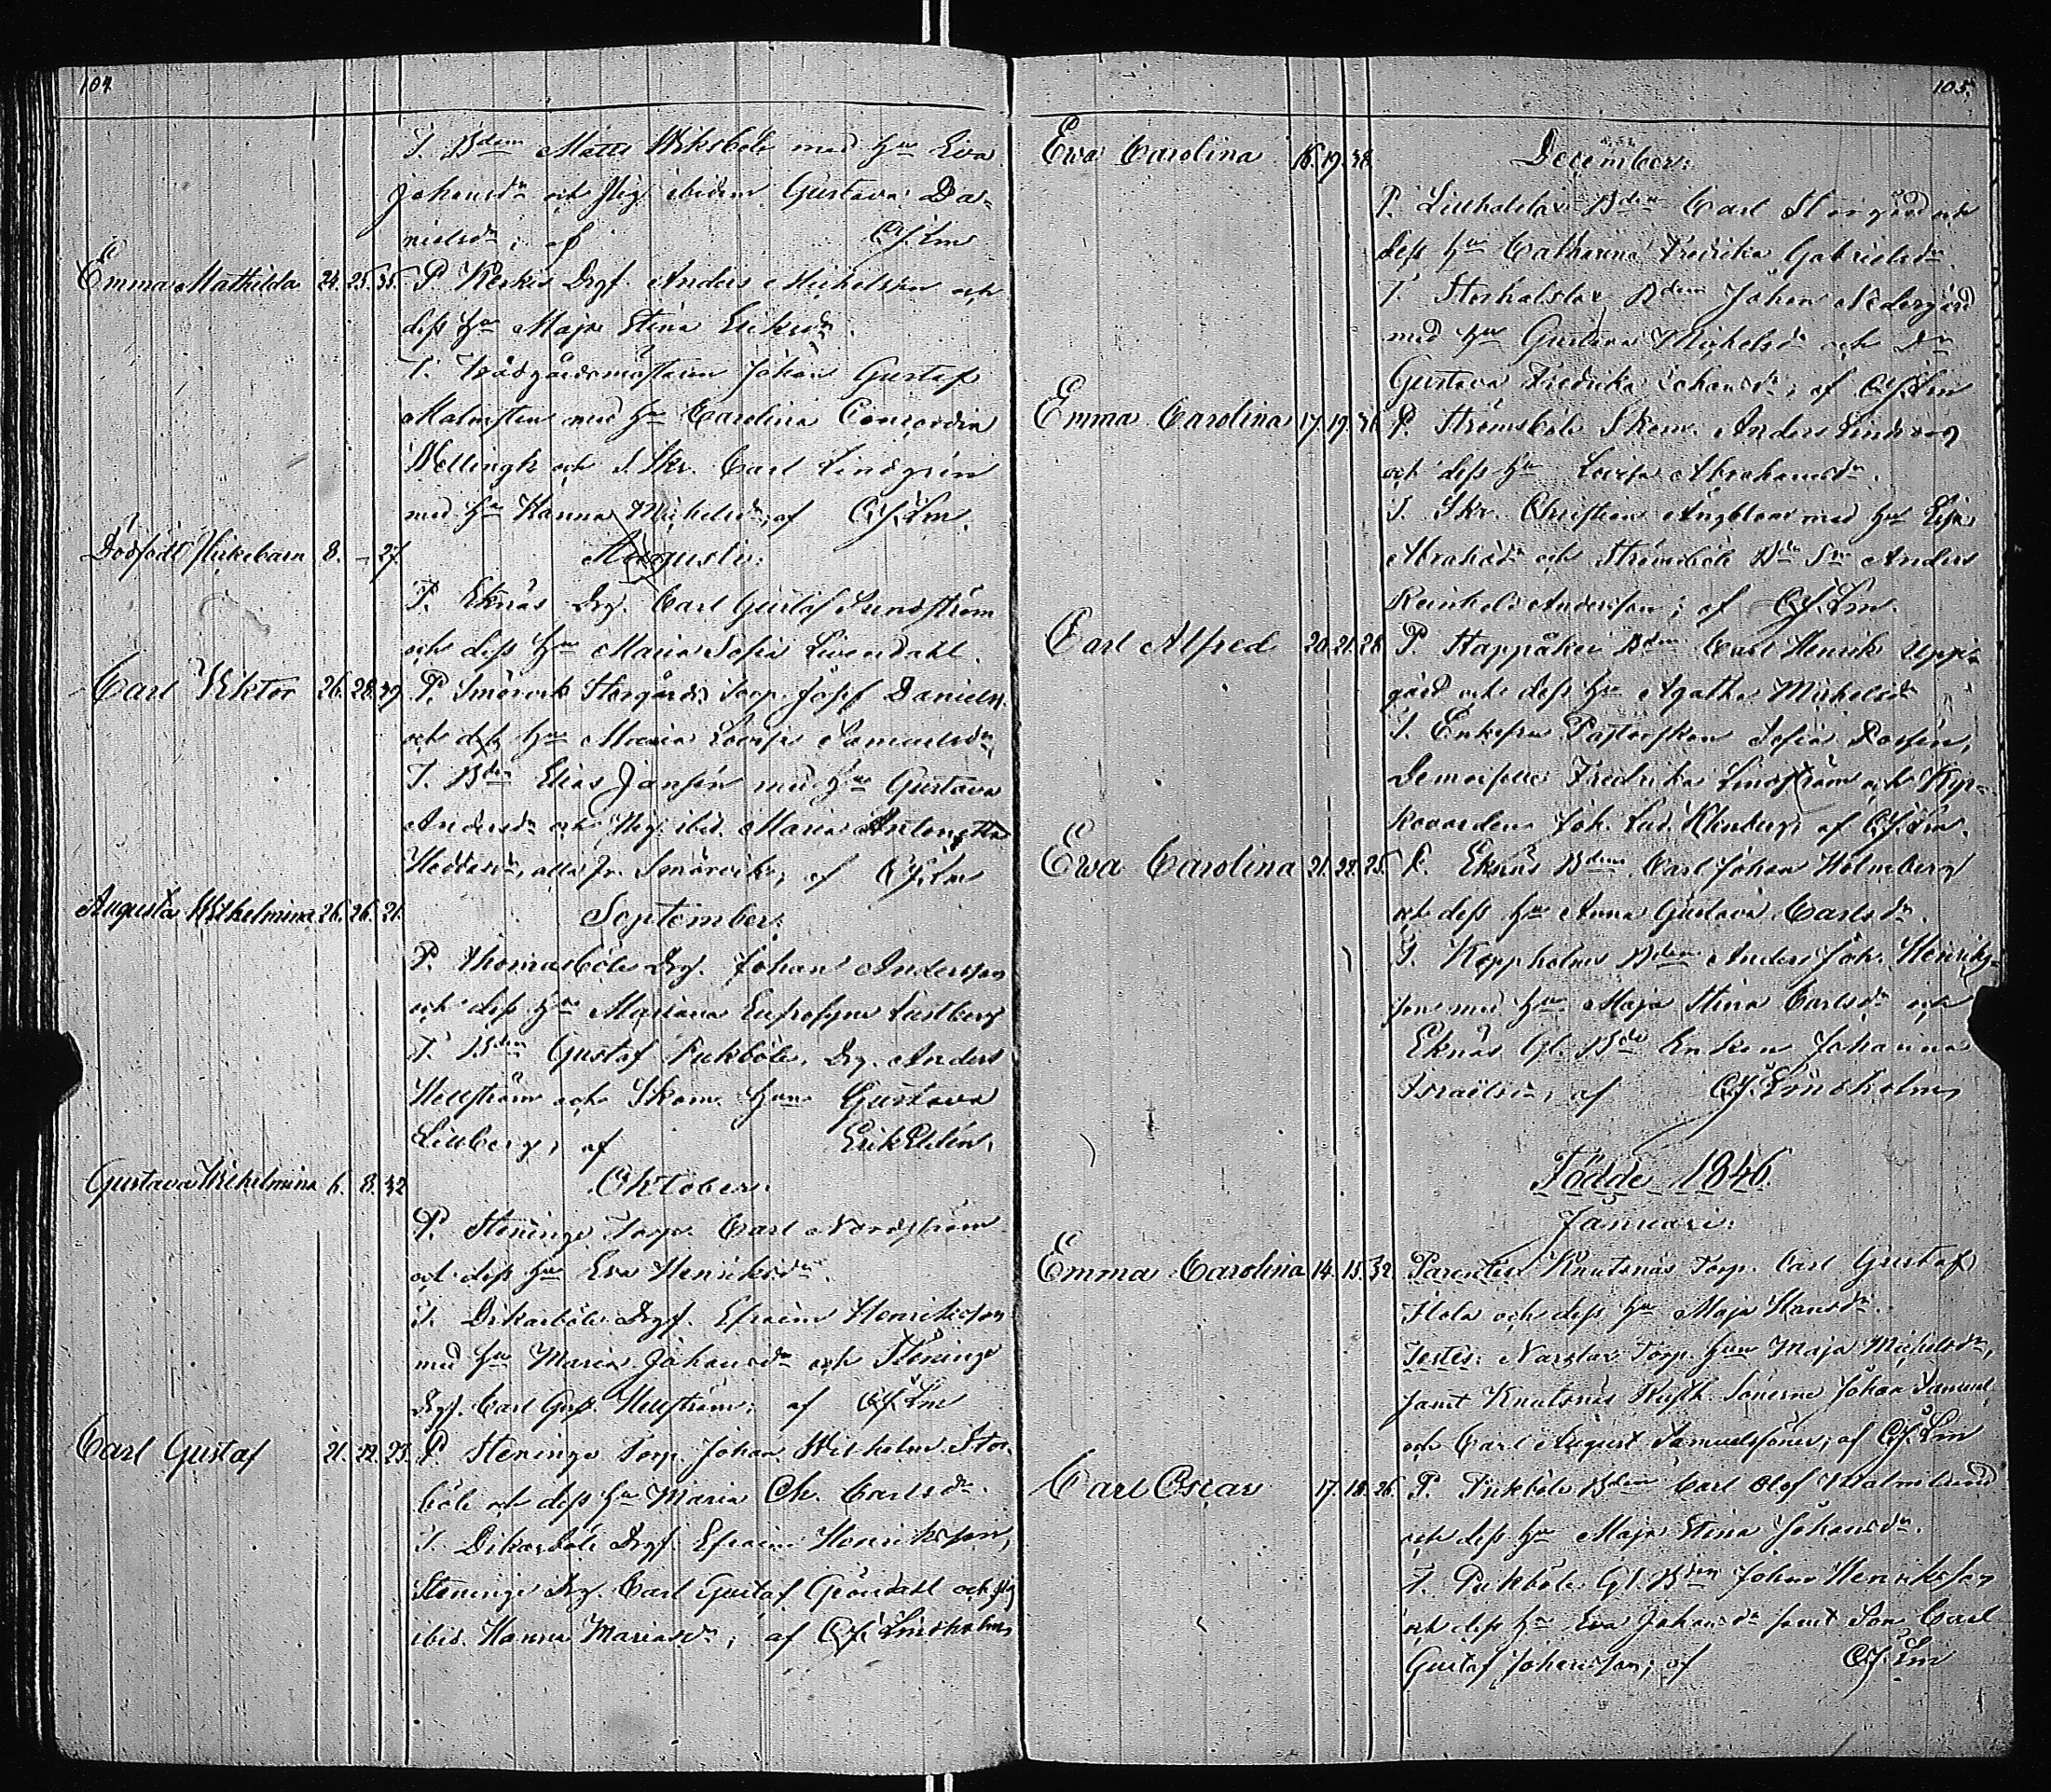 104.
T. Bden Matts Wiksböle med Hu Eva
Johansdr och Pig. ibidem Gustava Da-
nielsdr; af CJ. Lm
Emma Mathilda 24. 25. 35. P. Kerkis Drgf. Anders Michelsson och
dess Hu Maja Stina Eriksdr.
T. Trädgårdsmästaren Johan Gustaf
Malmsten med Hu Carolina Concordia
Wellingk och S.Skr. Carl Lindgrén
med Hu Hanna Michelsdr; af CJ. Lm.
Dödfödt Flickebarn 8. – 27. Augusti:
P. Eknäs Drg. Carl Gustaf Sundström
och dess Hu Maria Sofia Livendahl.
Carl Viktor 26. 28. 39. P. Smörvik Storgårds Torp. Josef Danielss.
och dess Hu Maria Lovisa Samuelsdr
T. Bden Elias Jansén med Hu Gustava
Andersdr och Pig. ibid. Maria Antonetta
Heddasdr, alla fr. Smörvik; af CJ. Lm
Augusta Wilhelmina 26. 26. 21. September:
P. Thomasböle Drg. Johan Andersson
och dess Hu Mariana Eufrosyne Lustberg
T. Bden Gustaf Pukböle, Drg. Anders
Hellström och Skom. Hun Gustava
Lillberg; af Erik Elén.
Gustava Wilhelmina 6. 8. 32 Oktober:
P. Steninge Torp. Carl Nordström
och dess Hu Eva Henriksdr.
T. Dikarböle Drgf. Efraim Henriksson
med Hu Maria Johansdr och Steninge
Drgf. Carl Gust. Hellström; af CJ. Lm
Carl Gustaf 21. 22. 23. P. Steninge Torp. Johan Wilhelm Stor-
böle och dess Hu Maria Ch. Carlsdr.
T. Dikarböle Drgf. Efraim Henriksson,
Steninge Drg. Carl Gustaf Gröndahl och Pig
ibid. Hanna Mariasdr; af CJ. Lindholm
105.
Ewa Carolina 16. 19. 38. December:
P. Lillhalslax Bden Carl Storgård och
dess Hu Catharina Fredrika Gabrielsdr.
T. Storhalslax Bden Johan Nedergård
med Hu Gustava Michelsdr och Dr
Gustava Fredrika Johansdr; af CJ. Lm
Emma Carolina 17. 19. 36. P. Strömsböle Skom. Anders Lindroos
och dess Hu Lovisa Abrahamsdr.
T. Skr. Christian Ängblom med Hu Lisa
Abrahdr och Strömsböle Bde Sn Anders
Reinhold Andersson; af CJ. Lm.
Carl Alfred 20. 21. 28. P. Kappåker Bden Carl Henrik Uppi-
gård och dess Hu Agatha Michelsdr
T. Enkefru Pastorskan Sofia Rossén,
Demoiselle Fredrika Lindström och Kyr-
kovärden Joh. Lud. Klenberg; af CJ. Lm.
Ewa Carolina 21. 22. 25. P. Eknäs Bden Carl Johan Holmberg
och dess Hu Anna Gustava Carlsdr.
T. Koppholm Bden Anders Joh. Henriks-
son med Hu Maja Stina Carlsdr och
Eknäs Gl. Bde Enkan Johanna
Israelsdr; af CJ. Lindholm
Födde 1846.
Januari:
Emma Carolina 14. 15. 32. Parentes Knutsnäs Torp. Carl Gustaf
Flola och dess Hu Maja Hansdr.
Testes: Norrlax Torp. Hun Maja Michelsdr,
samt Knutsnäs Rusth. Sönerne Johan Samuel
och Carl August Samuelssöner; af CJ. Lm
Carl Oscar 17. 18. 26. P. Pukböle Bden Carl Olof Malmlund
och dess Hu Maja Stina Johansdr.
T. Pukböle Gl. Bden Johan Henriksson
och dess Hu Eva Johansdr samt Son Carl
Gustaf Johansson; af CJ. Lm